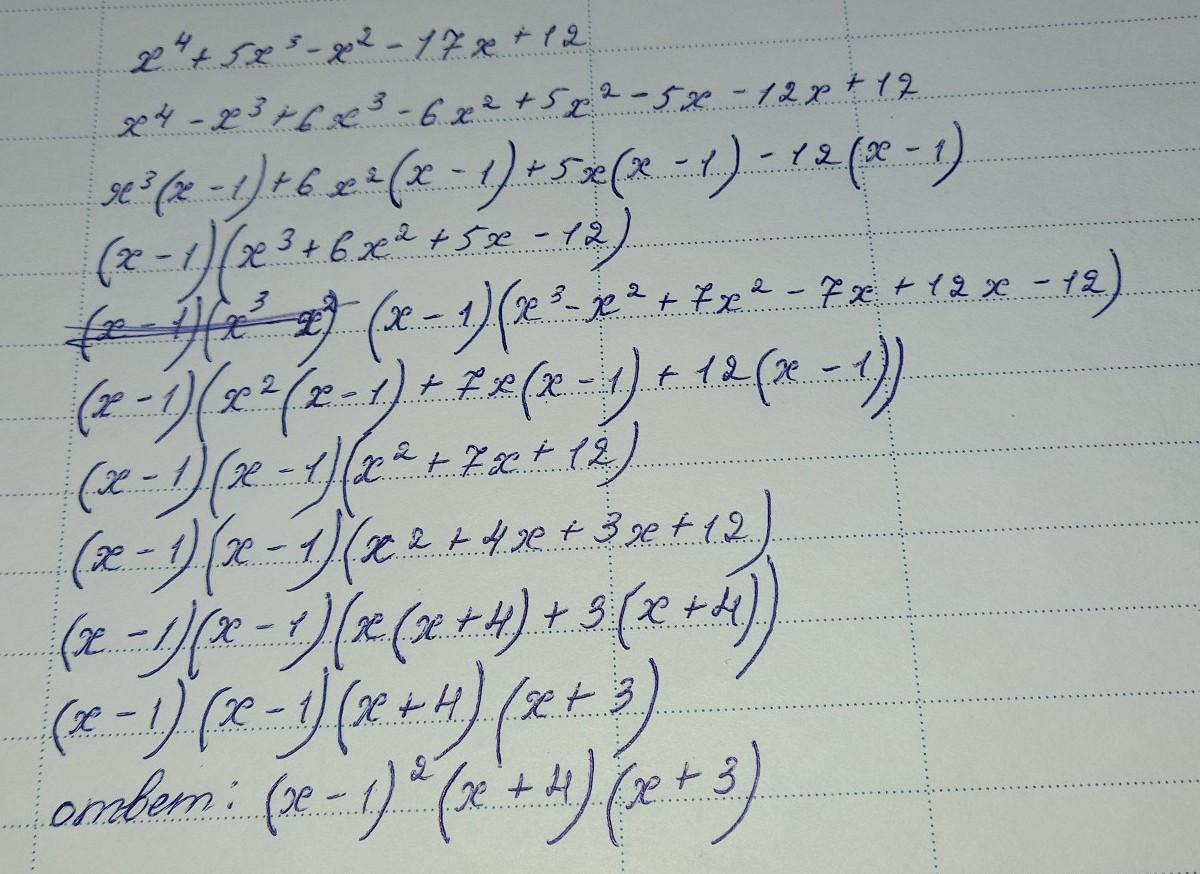 x⁴ + 5x³ - x² - 17x + 12
x⁴ - x³ + 6x³ - 6x² + 5x² - 5x - 12x + 12
x³(x - 1) + 6x²(x - 1) + 5x(x - 1) - 12(x - 1)
(x - 1)(x³ + 6x² + 5x - 12)
(x - 1)(x³ x²) (x - 1)(x³ - x² + 7x² - 7x + 12x - 12)
(x - 1)(x²(x - 1) + 7x(x - 1) + 12(x - 1))
(x - 1)(x - 1)(x² + 7x + 12)
(x - 1)(x - 1)(x2 + 4x + 3x + 12)
(x - 1)(x - 1)(x(x + 4) + 3(x + 4))
(x - 1)(x - 1)(x + 4)(x + 3)
ответ: (x - 1)²(x + 4)(x + 3)